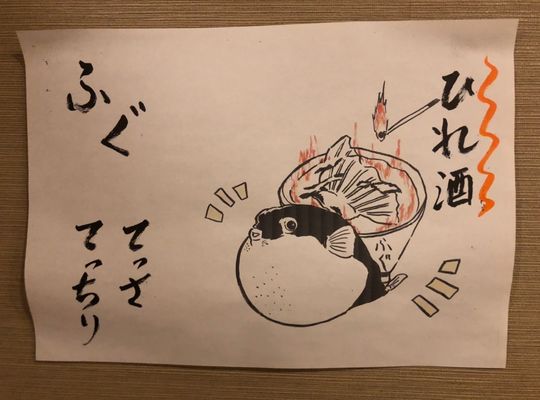 ひれ酒
ふぐ
ふぐ
てっさ
てっちり